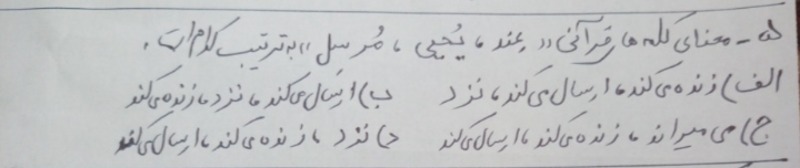 ۵ - معنای کلمه های قرآنی « عِند ، یُحیی ، یُرسل » به ترتیب کدام است .
الف) زنده می کند ، ارسال می کند ، نزد ب) ارسال می کند ، نزد ، زنده می کند
ج) می میراند ، زنده می کند ، ارسال می کند د) نزد ، زنده می کند ، ارسال می کند